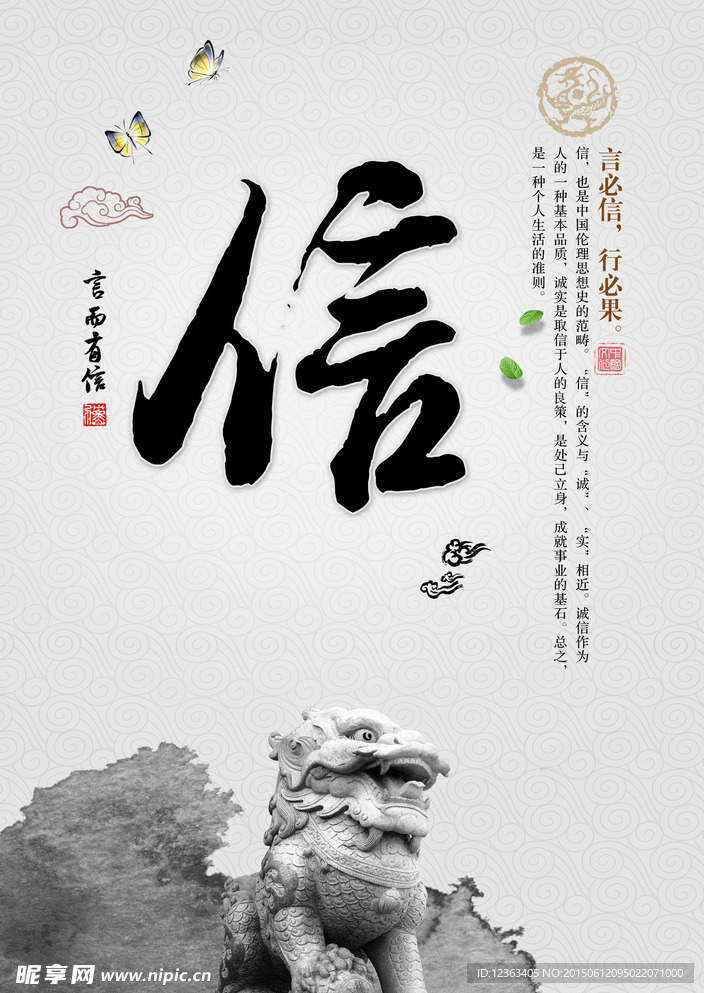 言必信，行必果。
信，也是中国伦理思想史的范畴。“信”的含义与“诚”、“实”相近。诚信作为
人的一种基本品质，诚实是取信于人的良策，是处己立身，成就事业的基石。总之，
是一种个人生活的准则。
信
言而有信
昵享网 www.nipic.cn
ID:12363405 NO:20150612095022071000